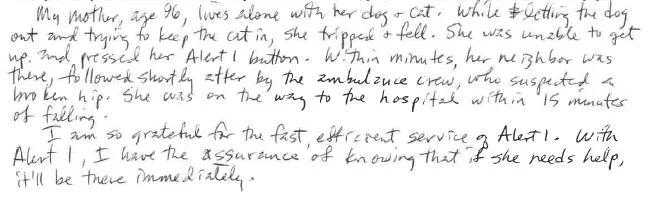 My mother, age 96, lives alone with her dog & cat. While letting the dog
out and trying to keep the cat in, she tripped & fell. She was unable to get
up, and pressed her Alert 1 button. Within minutes, her neighbor was
there, followed shortly after by the ambulance crew, who suspected a
broken hip. She was on the way to the hospital within 15 minutes
of falling.
I am so grateful for the fast, efficient service of Alert 1. With
Alert 1, I have the assurance of knowing that if she needs help,
it'll be there immediately.